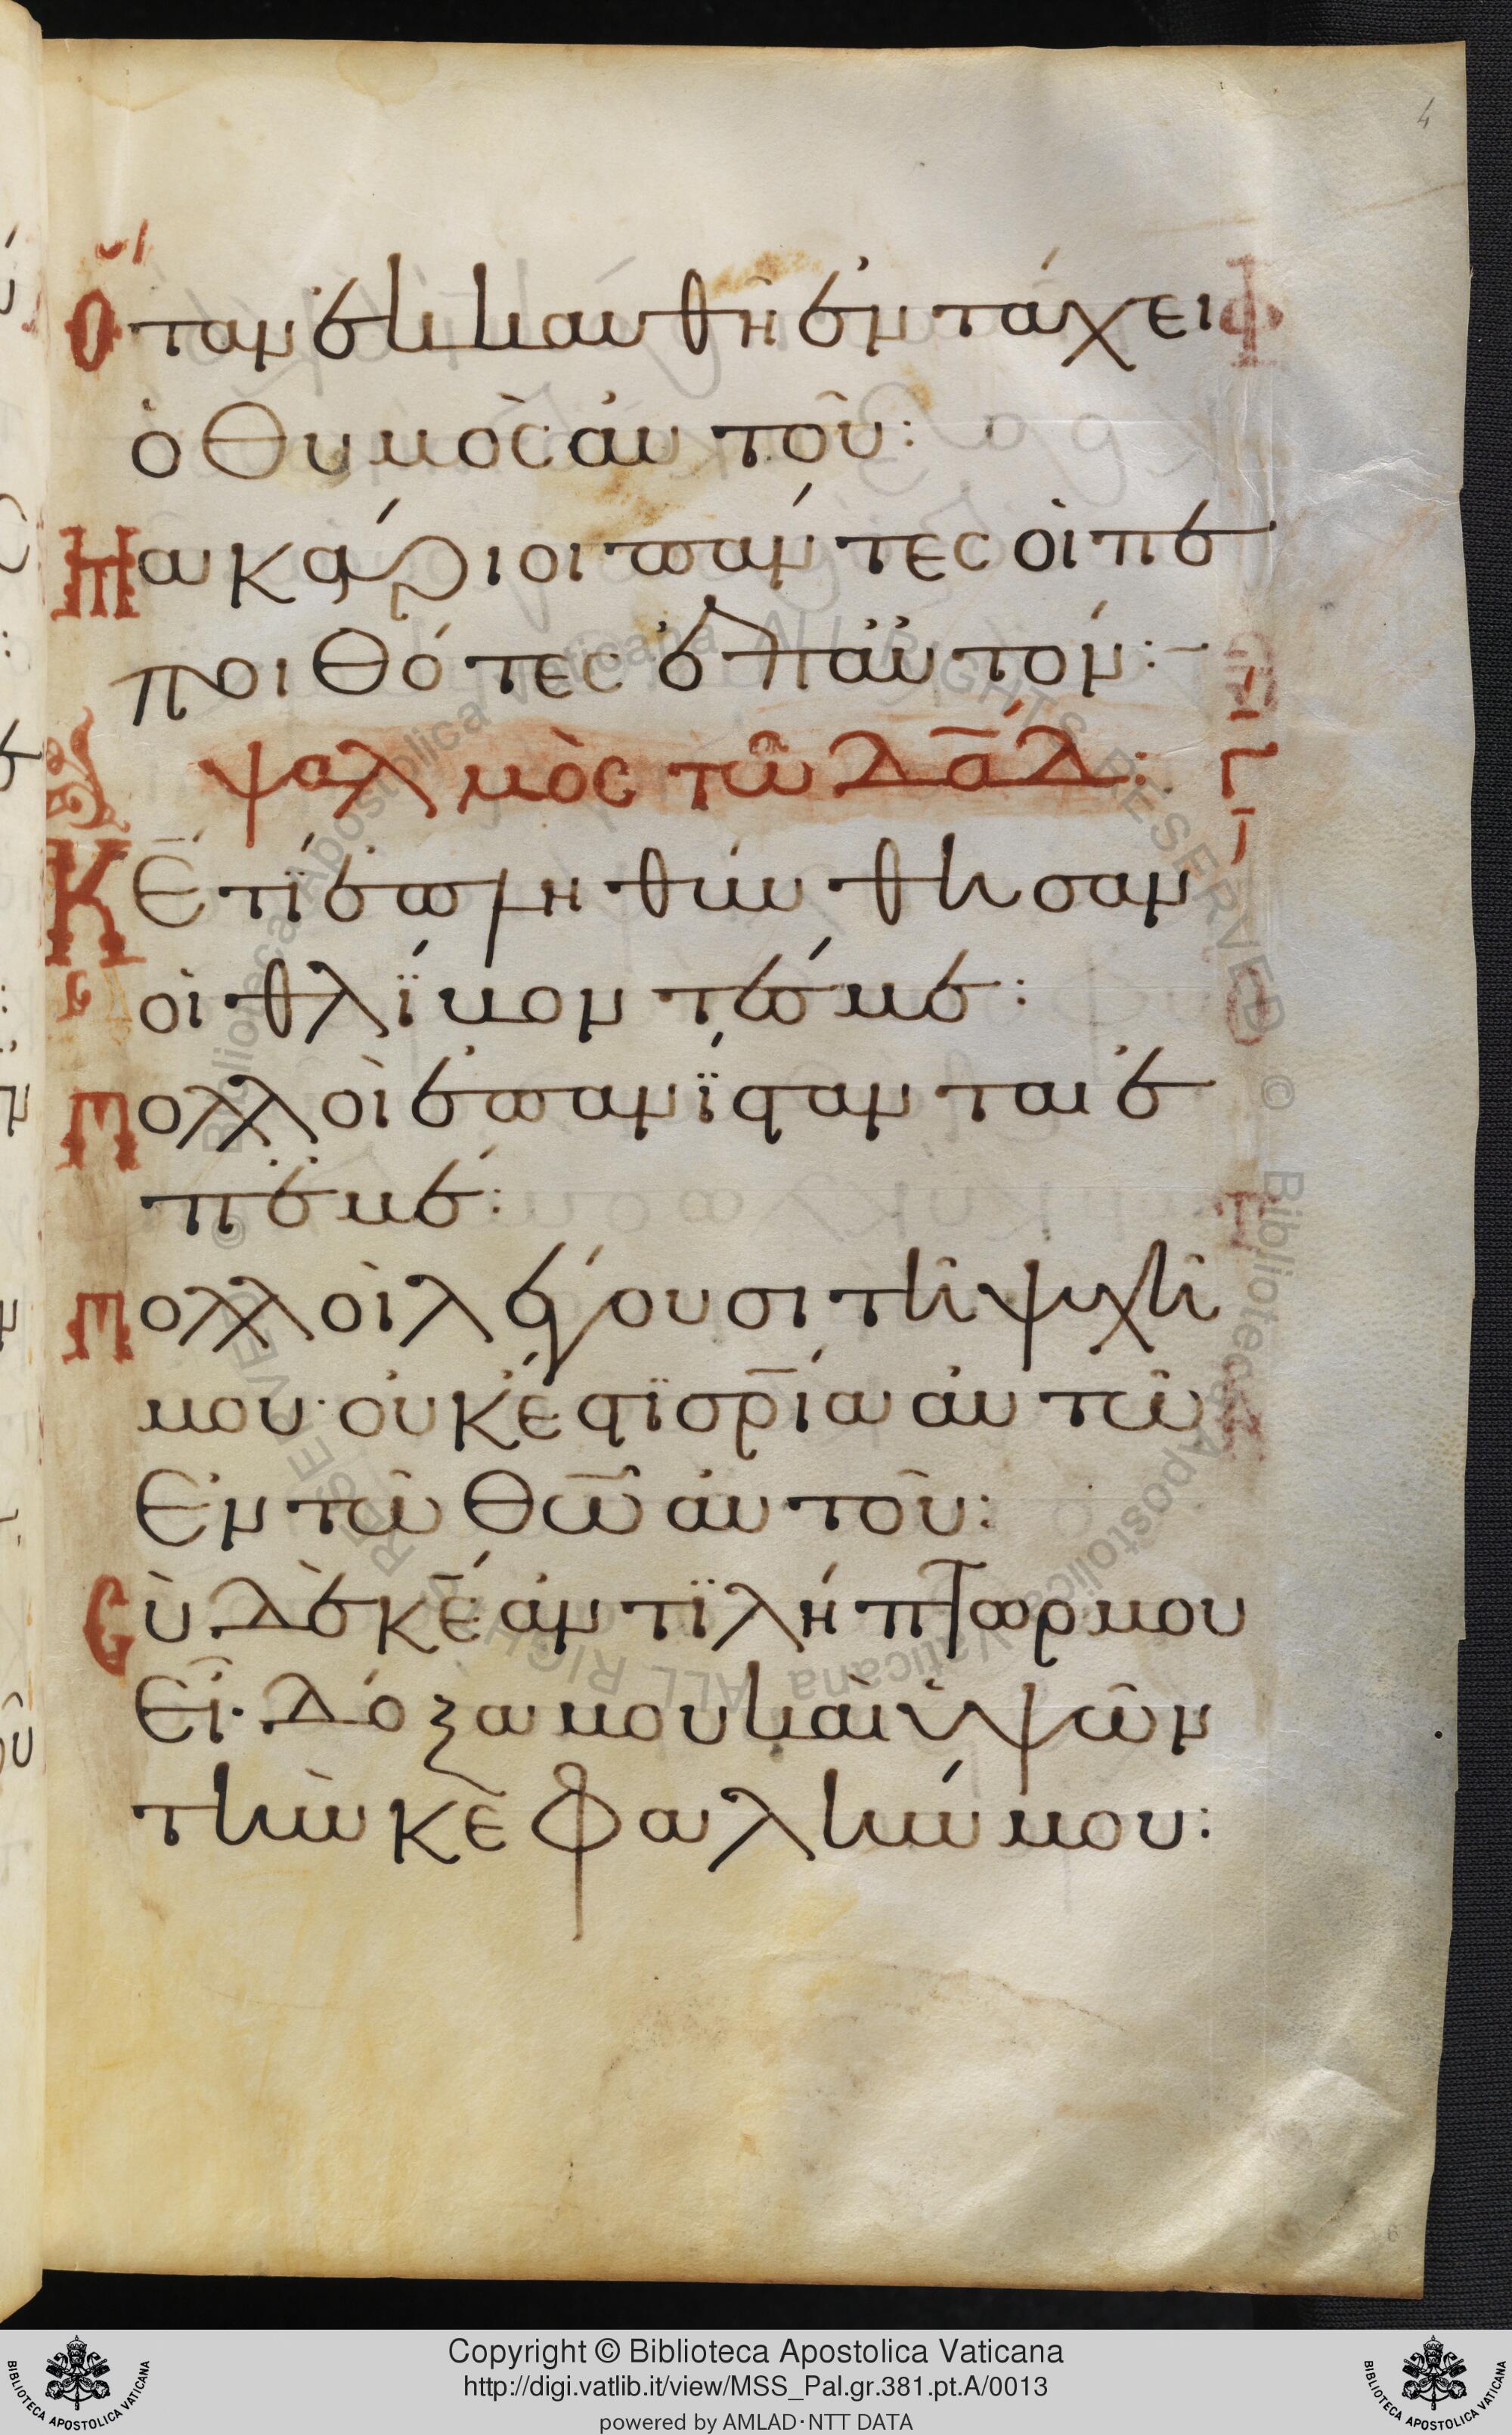 4
Ὅταν ἐκκαυθῆ ἐν τάχει
ὁ θυμὸς ἀυτοῦ:
Μακάριοι πάντες οἱ πε
ποιθότες ἐπ ἀυτόν:
ψαλμὸς τῶ δᾱδ:
Κ̅Ε̅ τί ἐπληθύνθησαν
οἱ θλίβοντές με:
Πολλοὶ ἐπανίστανται ἐ
π ἐμέ:
Πολλοὶ λέγουσι τῆ ψυχῆ
μου· οὐκ ἔστι σρ̅ία ἀυτῶ
ἐν τῶ θ̅ω̅ ἀυτοῦ:
Σὺ δὲ κ̅ε̅ ἀντιλήπτωρ μου
εἶ· δόξα μου καὶ ὑψῶν
τὴν κεφαλήν μου:
6
Copyright © Biblioteca Apostolica Vaticana
http://digi.vatlib.it/view/MSS_Pal.gr.381.pt.A/0013
powered by AMLAD·NTT DATA
BIBLIOTECA APOSTOLICA VATICANA
BIBLIOTECA APOSTOLICA VATICANA